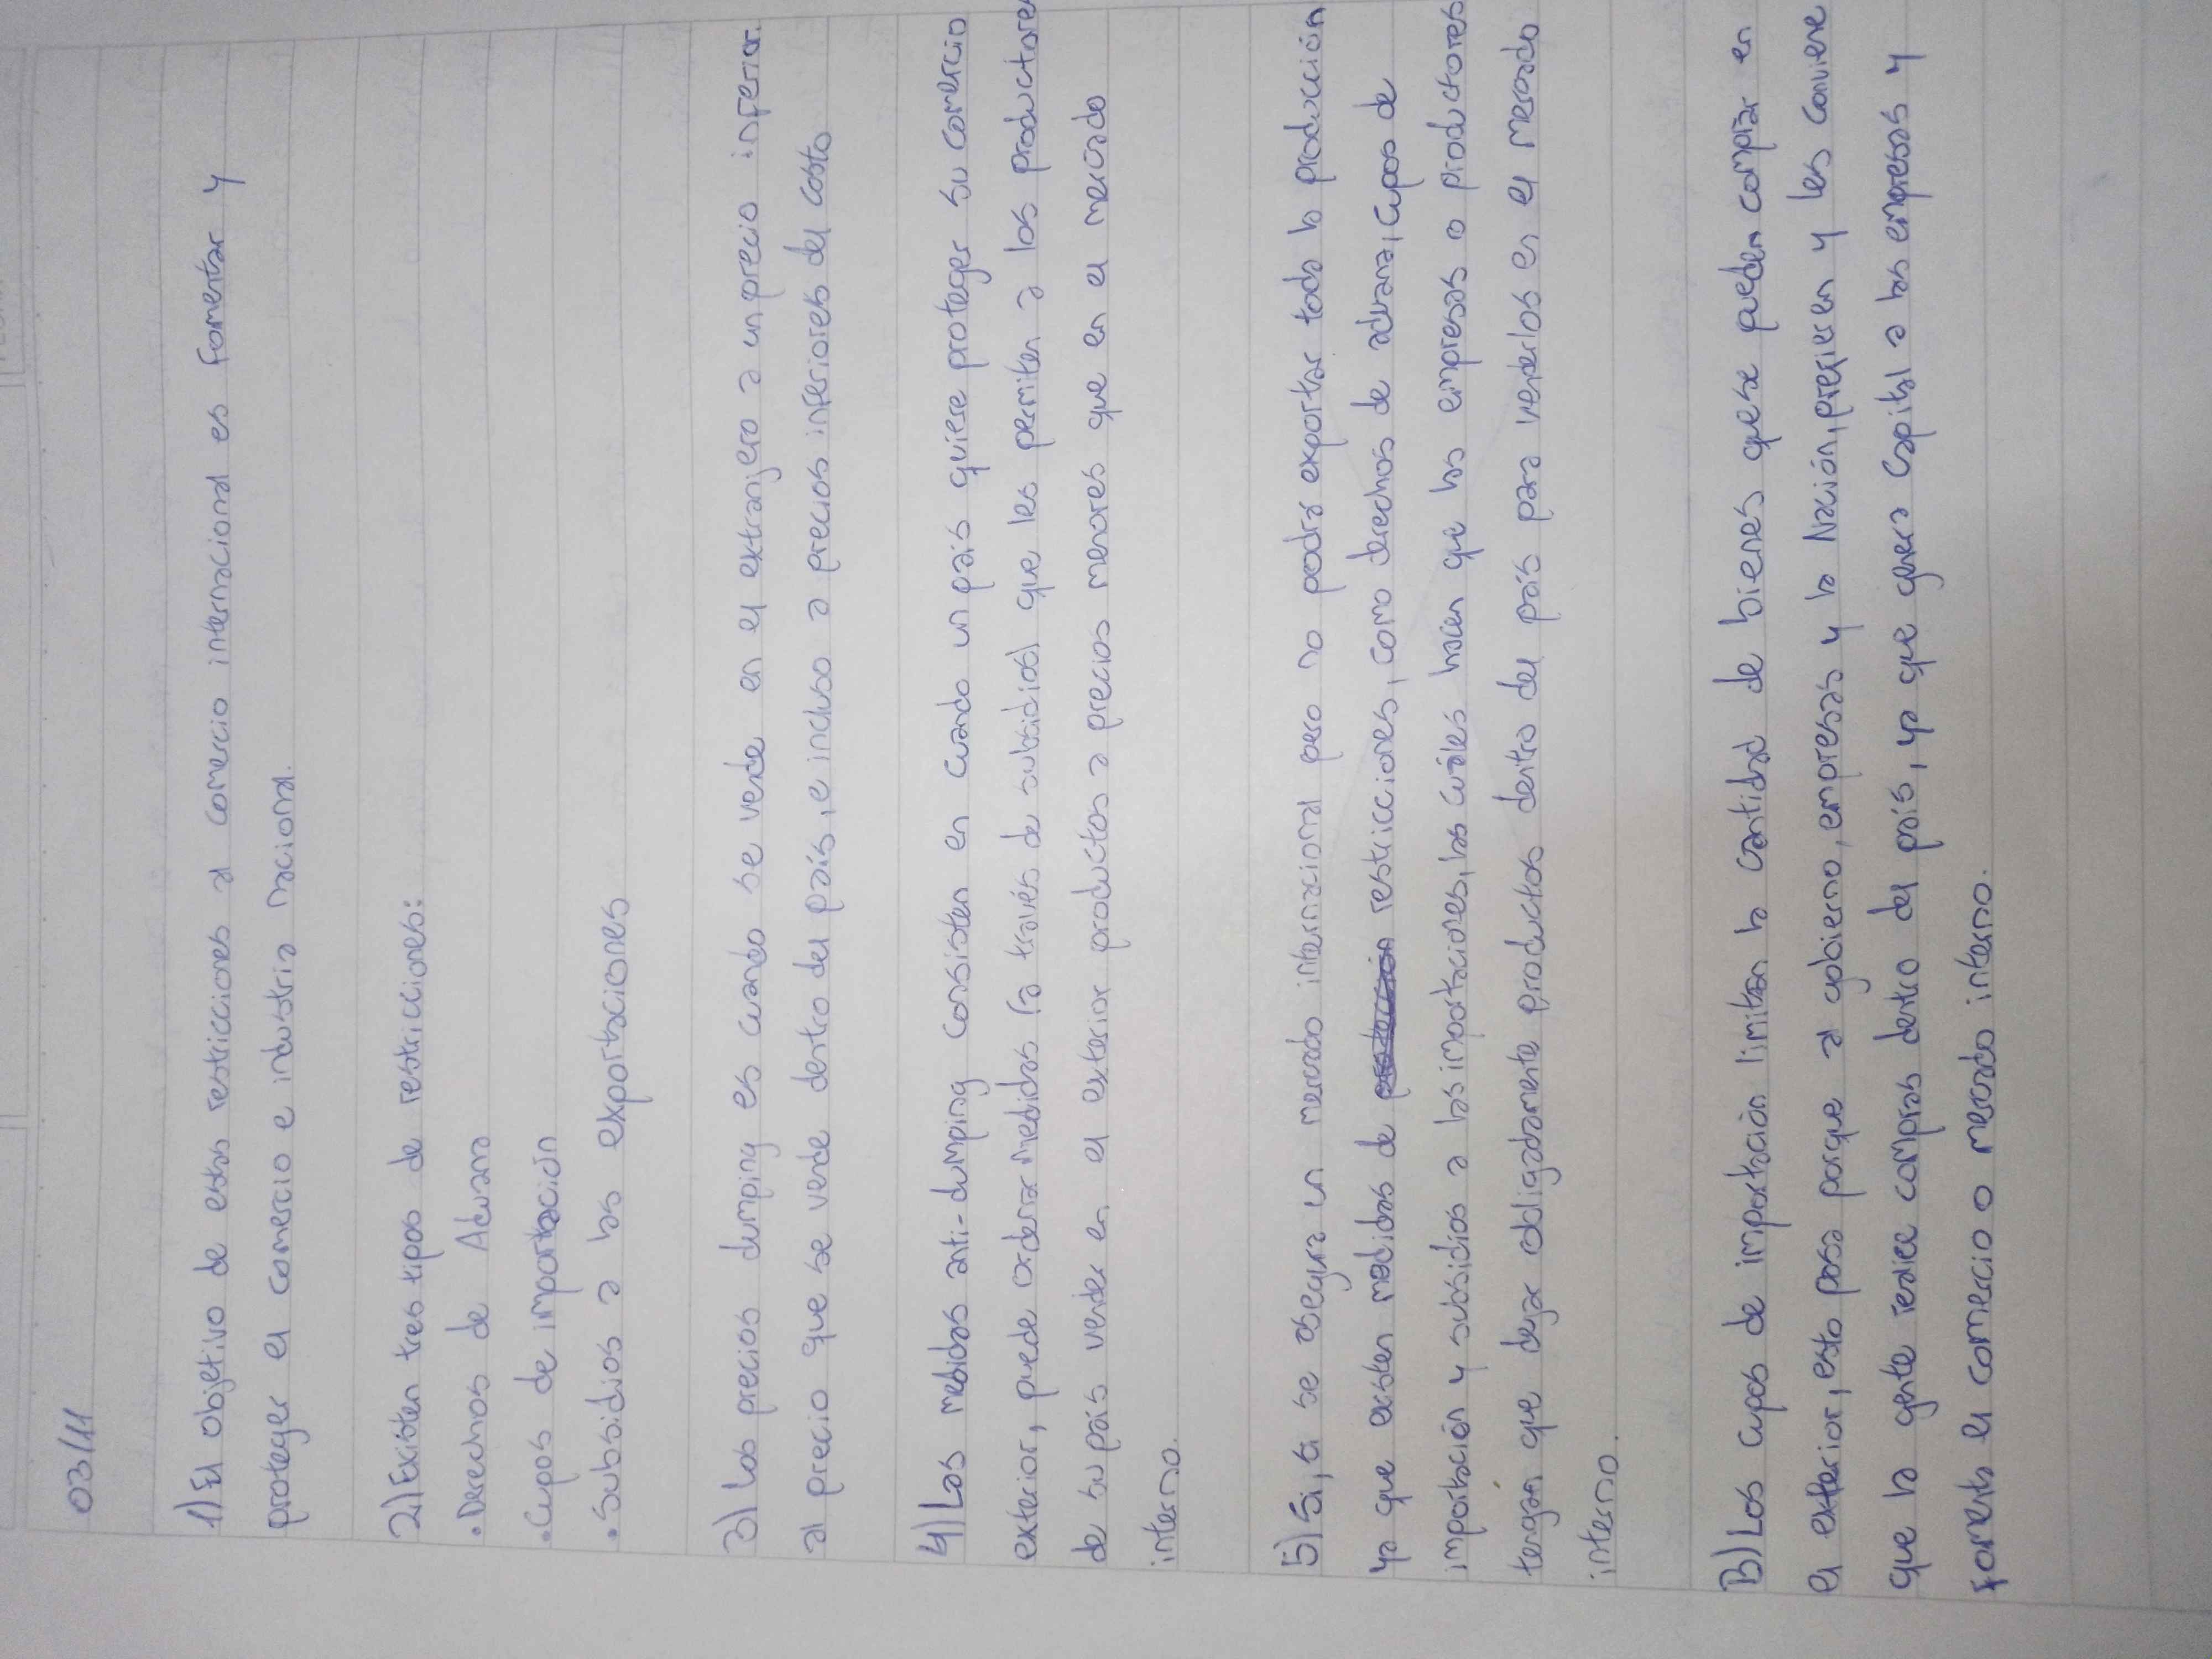 03/11
1) El objetivo de estas restricciones al comercio internacional es fomentar y
proteger el comercio e industria nacional.
2) Existen tres tipos de restricciones:
• Derechos de Aduana
• Cupos de importación
• Subsidios a las exportaciones
3) Los precios dumping es cuando se vende en el extranjero a un precio inferior
al precio que se vende dentro del país, e incluso a precios inferiores del costo
4) Las medidas anti-dumping consisten en cuando un país quiere proteger su comercio
exterior, puede ordenar medidas (a través de subsidios) que les permiten a los productores
de su país vender en el exterior productos a precios menores que en el mercado
interno.
5) Si, si se asegura un mercado internacional pero no podra exportar toda la producción
ya que existen medidas de restricciones, como derechos de aduana, cupos de
importación y subsidios a las importaciones, las cuáles hacen que las empresas o productores
tengan que dejar obligadamente productos dentro del país para venderlos en el mercado
interno.
B) Los cupos de importación limitan la cantidad de bienes que se pueden comprar en
el exterior, esto pasa porque al gobierno, empresas y la Nación, prefieren y les conviene
que la gente realice compras dentro del país, ya que genera capital a las empresas y
fomenta el comercio o mercado interno.